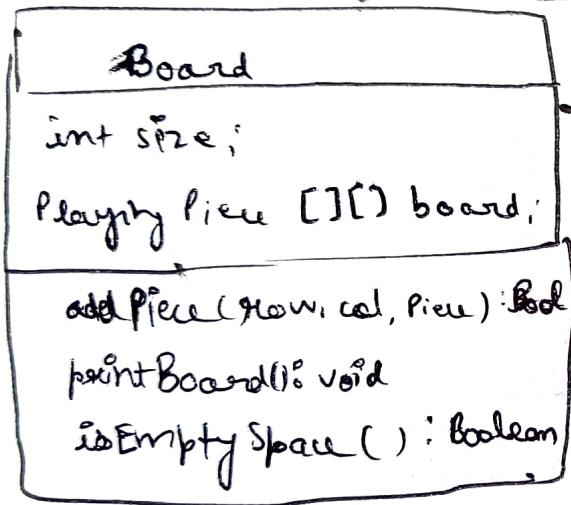 Board
int size;
Playing Piece [][] board;
addPiece(row, col, Piece): Bool
printBoard(): void
isEmptySpace(): Boolean